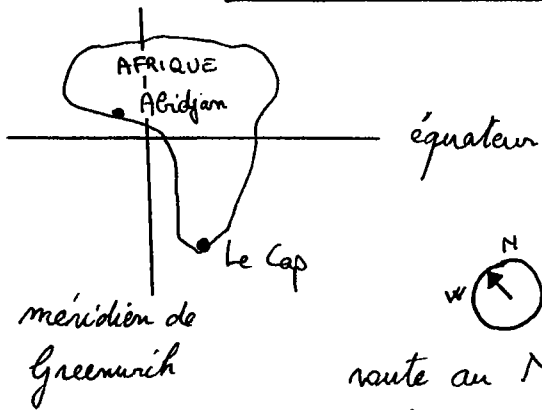 AFRIQUE
Abidjan
équateur
Le Cap
N
W
méridien de
Greenwich
route au N